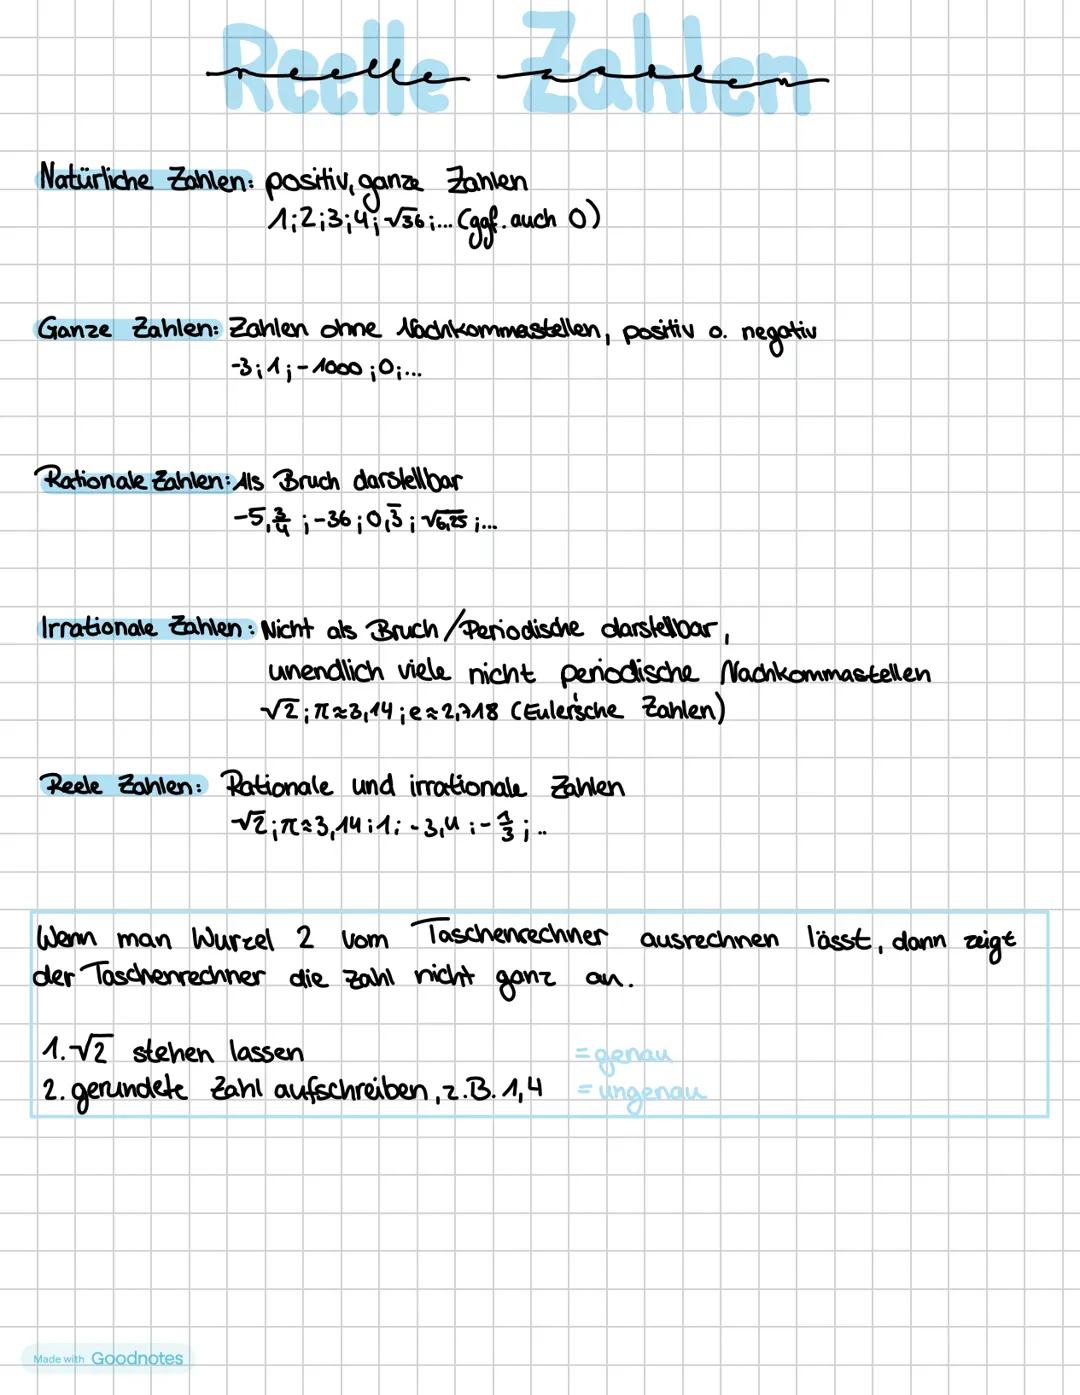 Reelle Zahlen
reelle zahlen
Natürliche Zahlen: positiv, ganze Zahlen
1;2;3;4;√36;... (ggf. auch 0)
Ganze Zahlen: Zahlen ohne Nachkommastellen, positiv o. negativ
-3;1;-1000;0;...
Rationale Zahlen: Als Bruch darstellbar
-5,3/4;-36;0,3̅;√6,25;...
Irrationale Zahlen: Nicht als Bruch/Periodische darstellbar,
unendlich viele nicht periodische Nachkommastellen
√2;π≈3,14;e≈2,718 (Euler'sche Zahlen)
Reele Zahlen: Rationale und irrationale Zahlen
√2;π≈3,14;1;-3,4;-1/3;..
Wenn man Wurzel 2 vom Taschenrechner ausrechnen lässt, dann zeigt
der Taschenrechner die Zahl nicht ganz an.
1. √2 stehen lassen =genau
2. gerundete Zahl aufschreiben, z.B. 1,4 =ungenau
Made with Goodnotes